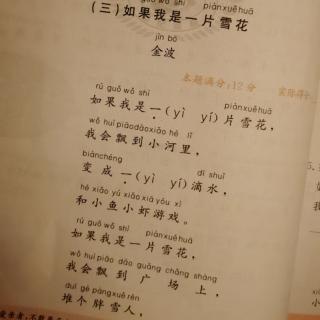 piànxuěhuā
(三)如果我是一片雪花
jīn bō
金波
本题满分:12分
rú guǒ wǒ shì piànxuěhuā
如果我是一(yì yí)片雪花,
wǒ huì piāo dào xiǎo hé lǐ
我会飘到小河里,
biànchéng dī shuǐ
变成一(yì yí)滴水,
hé xiǎo yú xiǎo xiā yóu xì
和小鱼小虾游戏。
rú guǒ wǒ shì piànxuěhuā
如果我是一片雪花,
wǒ huì piāo dào guǎng chǎng shàng
我会飘到广场上,
duī gè pàngxuě rén
堆个胖雪人,